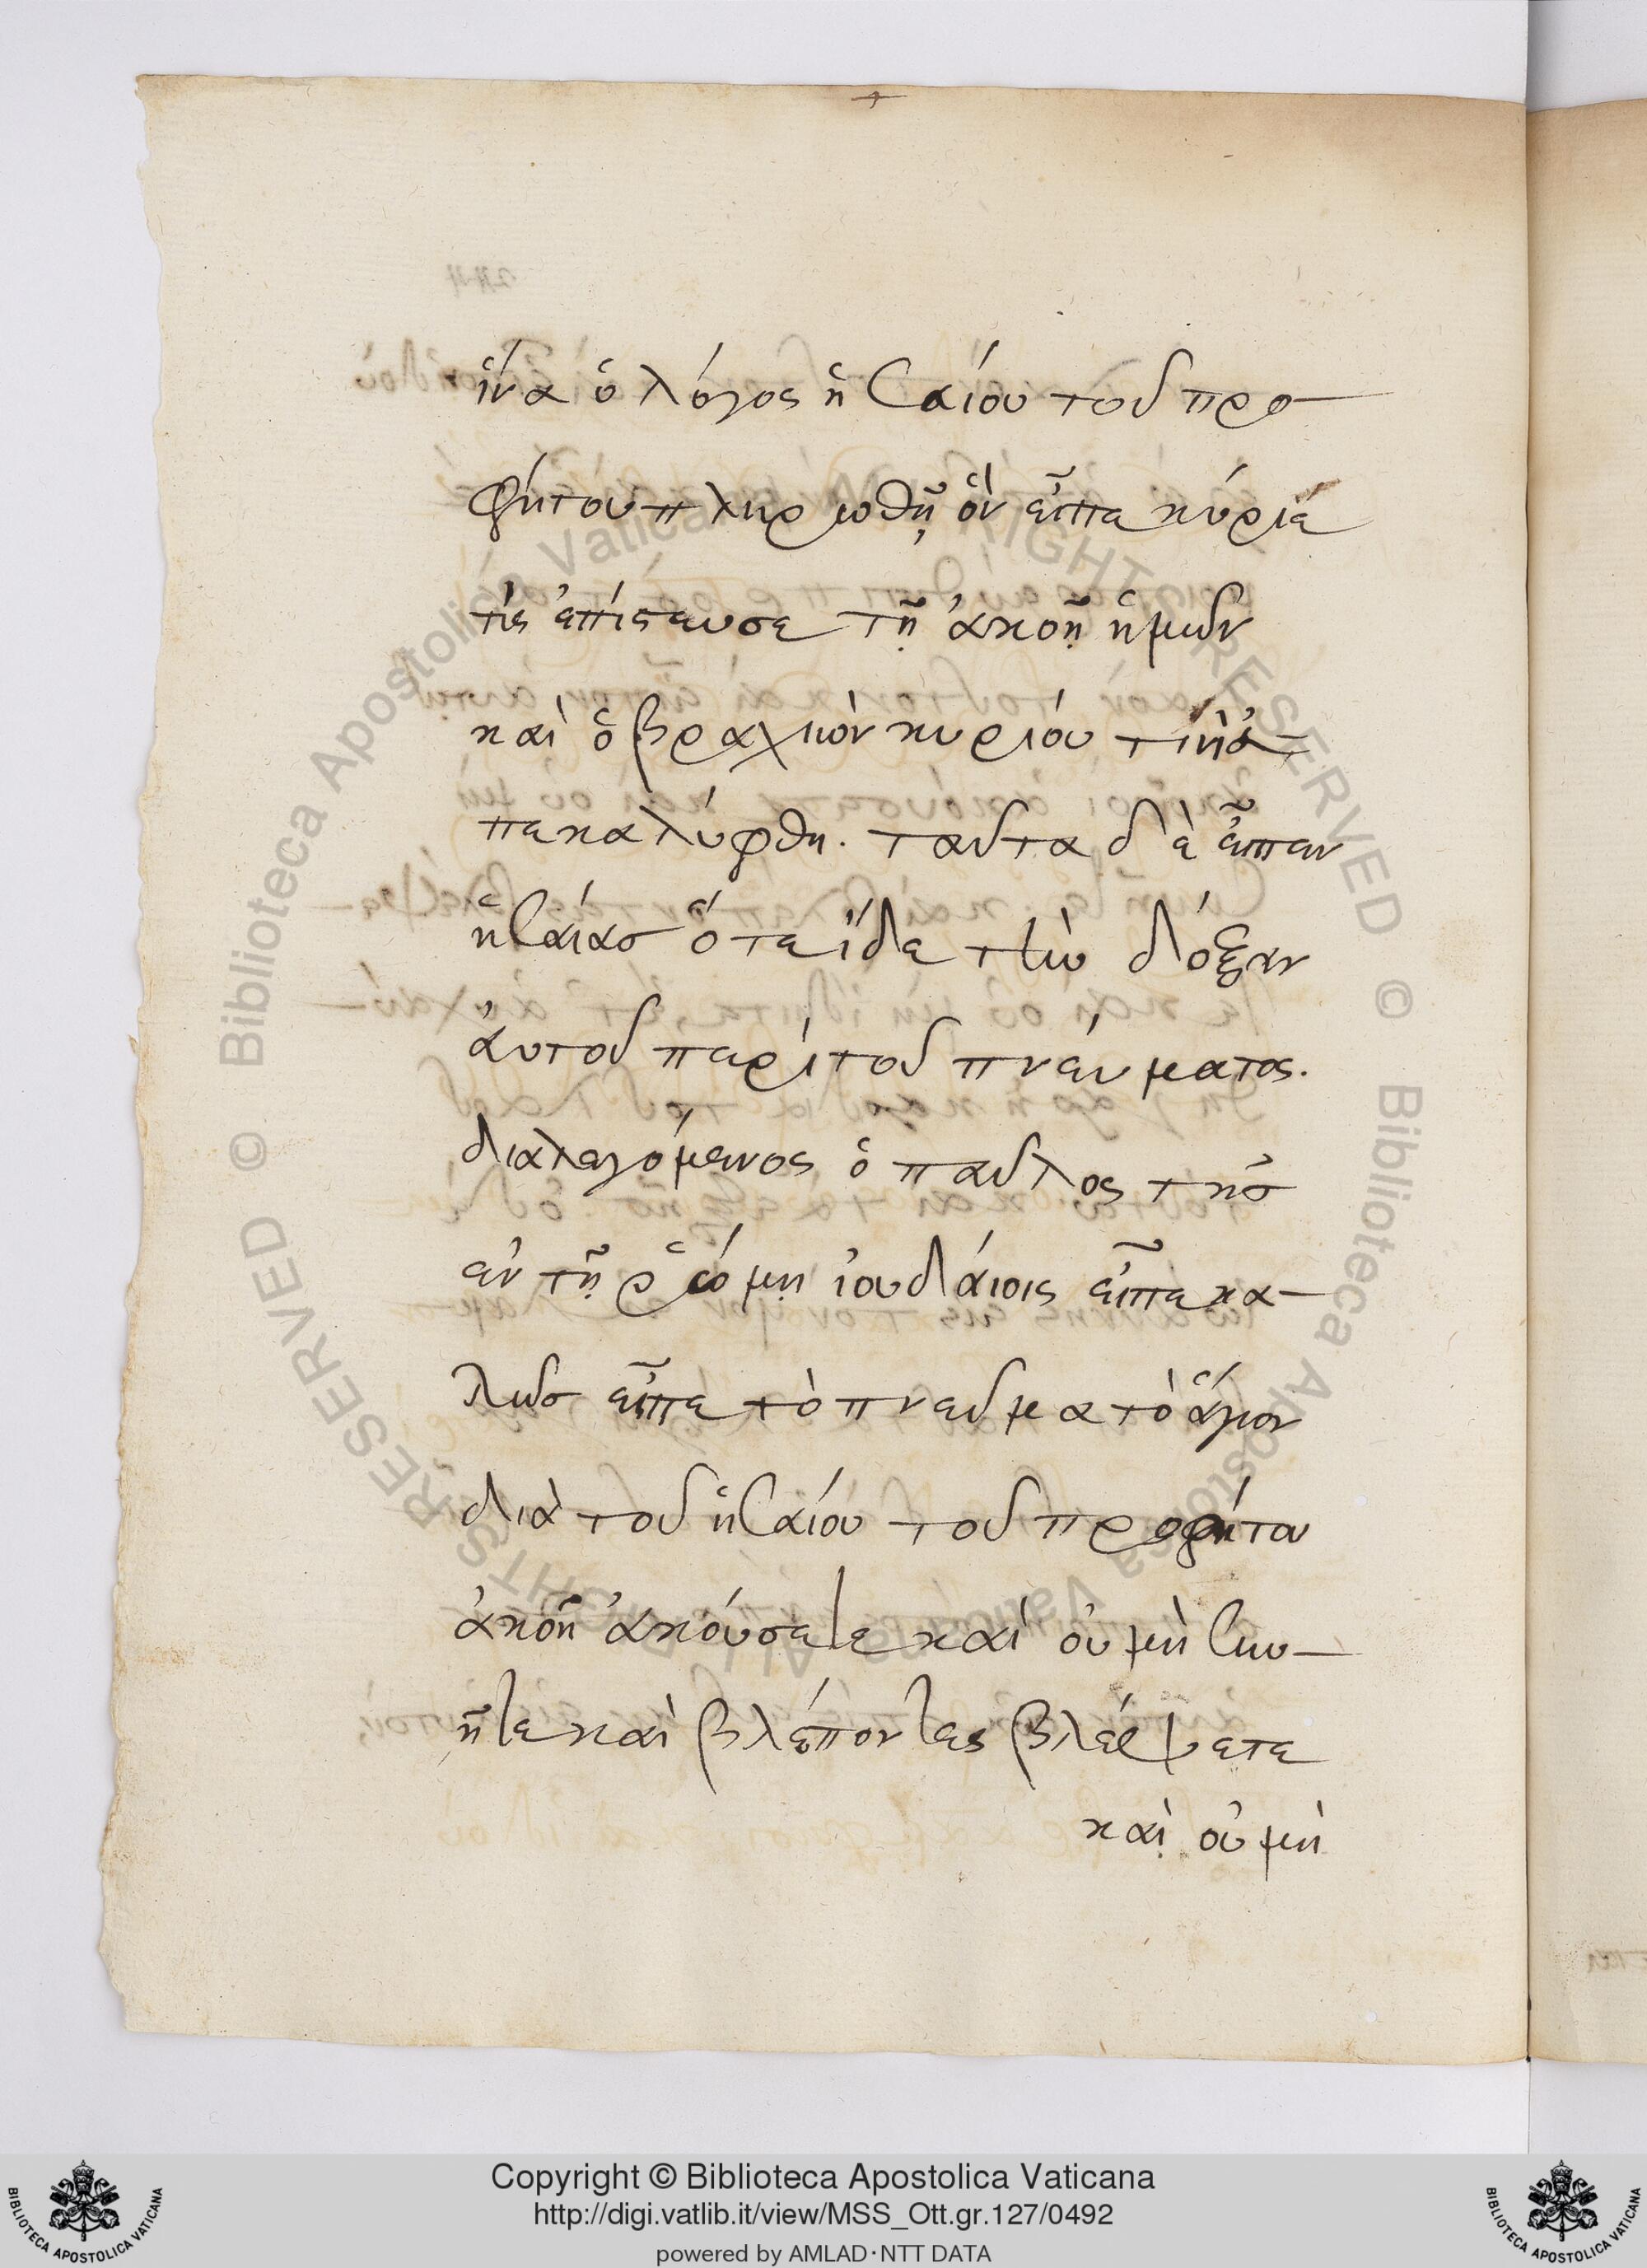 ἵνα ὁ λόγος ἡσαίου τοῦ προ-
φήτου πληρωθῇ, ὃν εἶπε κύριε
τίς ἐπίστευσε τῇ ἀκοῇ ἡμῶν
καὶ ὁ βραχιὼν κυρίου τινὶ ἀ-
πεκαλύφθη. ταῦτα δὲ εἶπεν
ἡσαίας ὅτε ἴδε τὴν δόξαν
ἀυτοῦ περὶ τοῦ πνεύματος.
διαλεγόμενος ὁ παῦλος τοῖσ
ἐν τῇ ῥώμῃ ἰουδάιοις εἶπε κα-
λῶσ εἶπε τὸ πνεῦμα τὸ ἅγιον
διὰ τοῦ ἡσαίου τοῦ προφήτου
ἀκοῆ ἀκούσετε καὶ ὀυ μὴ συν-
ῆτε καὶ βλέποντες βλέψετε
καὶ ὀυ μὴ
Copyright © Biblioteca Apostolica Vaticana
http://digi.vatlib.it/view/MSS_Ott.gr.127/0492
powered by AMLAD·NTT DATA
BIBLIOTECA APOSTOLICA VATICANA
BIBLIOTECA APOSTOLICA VATICANA